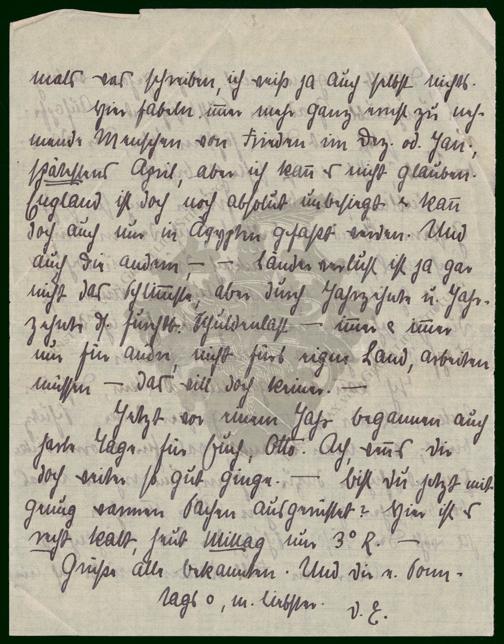 mals was schreiben, ich weiß ja auch selbst nichts.
Hier fabeln im̅er mehr ganz ernst zu neh-
mende Menschen von Frieden im Dez. od. Jan.,
spätestens April, aber ich kan̅ es nicht glauben.
England ist doch noch absolut unbesiegt u. kan̅
doch auch nur in Ägypten gefaßt werden. Und
auch die andern, — — Länderverlust ist ja gar
nicht das Schlim̅ste, aber durch Jahrzehnte u. Jahr-
zehnte d. furchtb. Schuldenlast — im̅er & im̅er
nur für andre, nicht fürs eigne Land, arbeiten
müssen — das will doch keiner. —
Jetzt vor einem Jahr begannen auch
harte Tage für Euch, Otto. Ach, wen̅s Dir
doch weiter so gut ginge. — bist Du jetzt mit
genug warmen Sachen ausgerüstet? Hier ist es
recht kalt, heut Mittag nur 3° R. —
Grüße alle Bekannten. Und die n. Sonn-
tags o, m. Liebster. D. E.